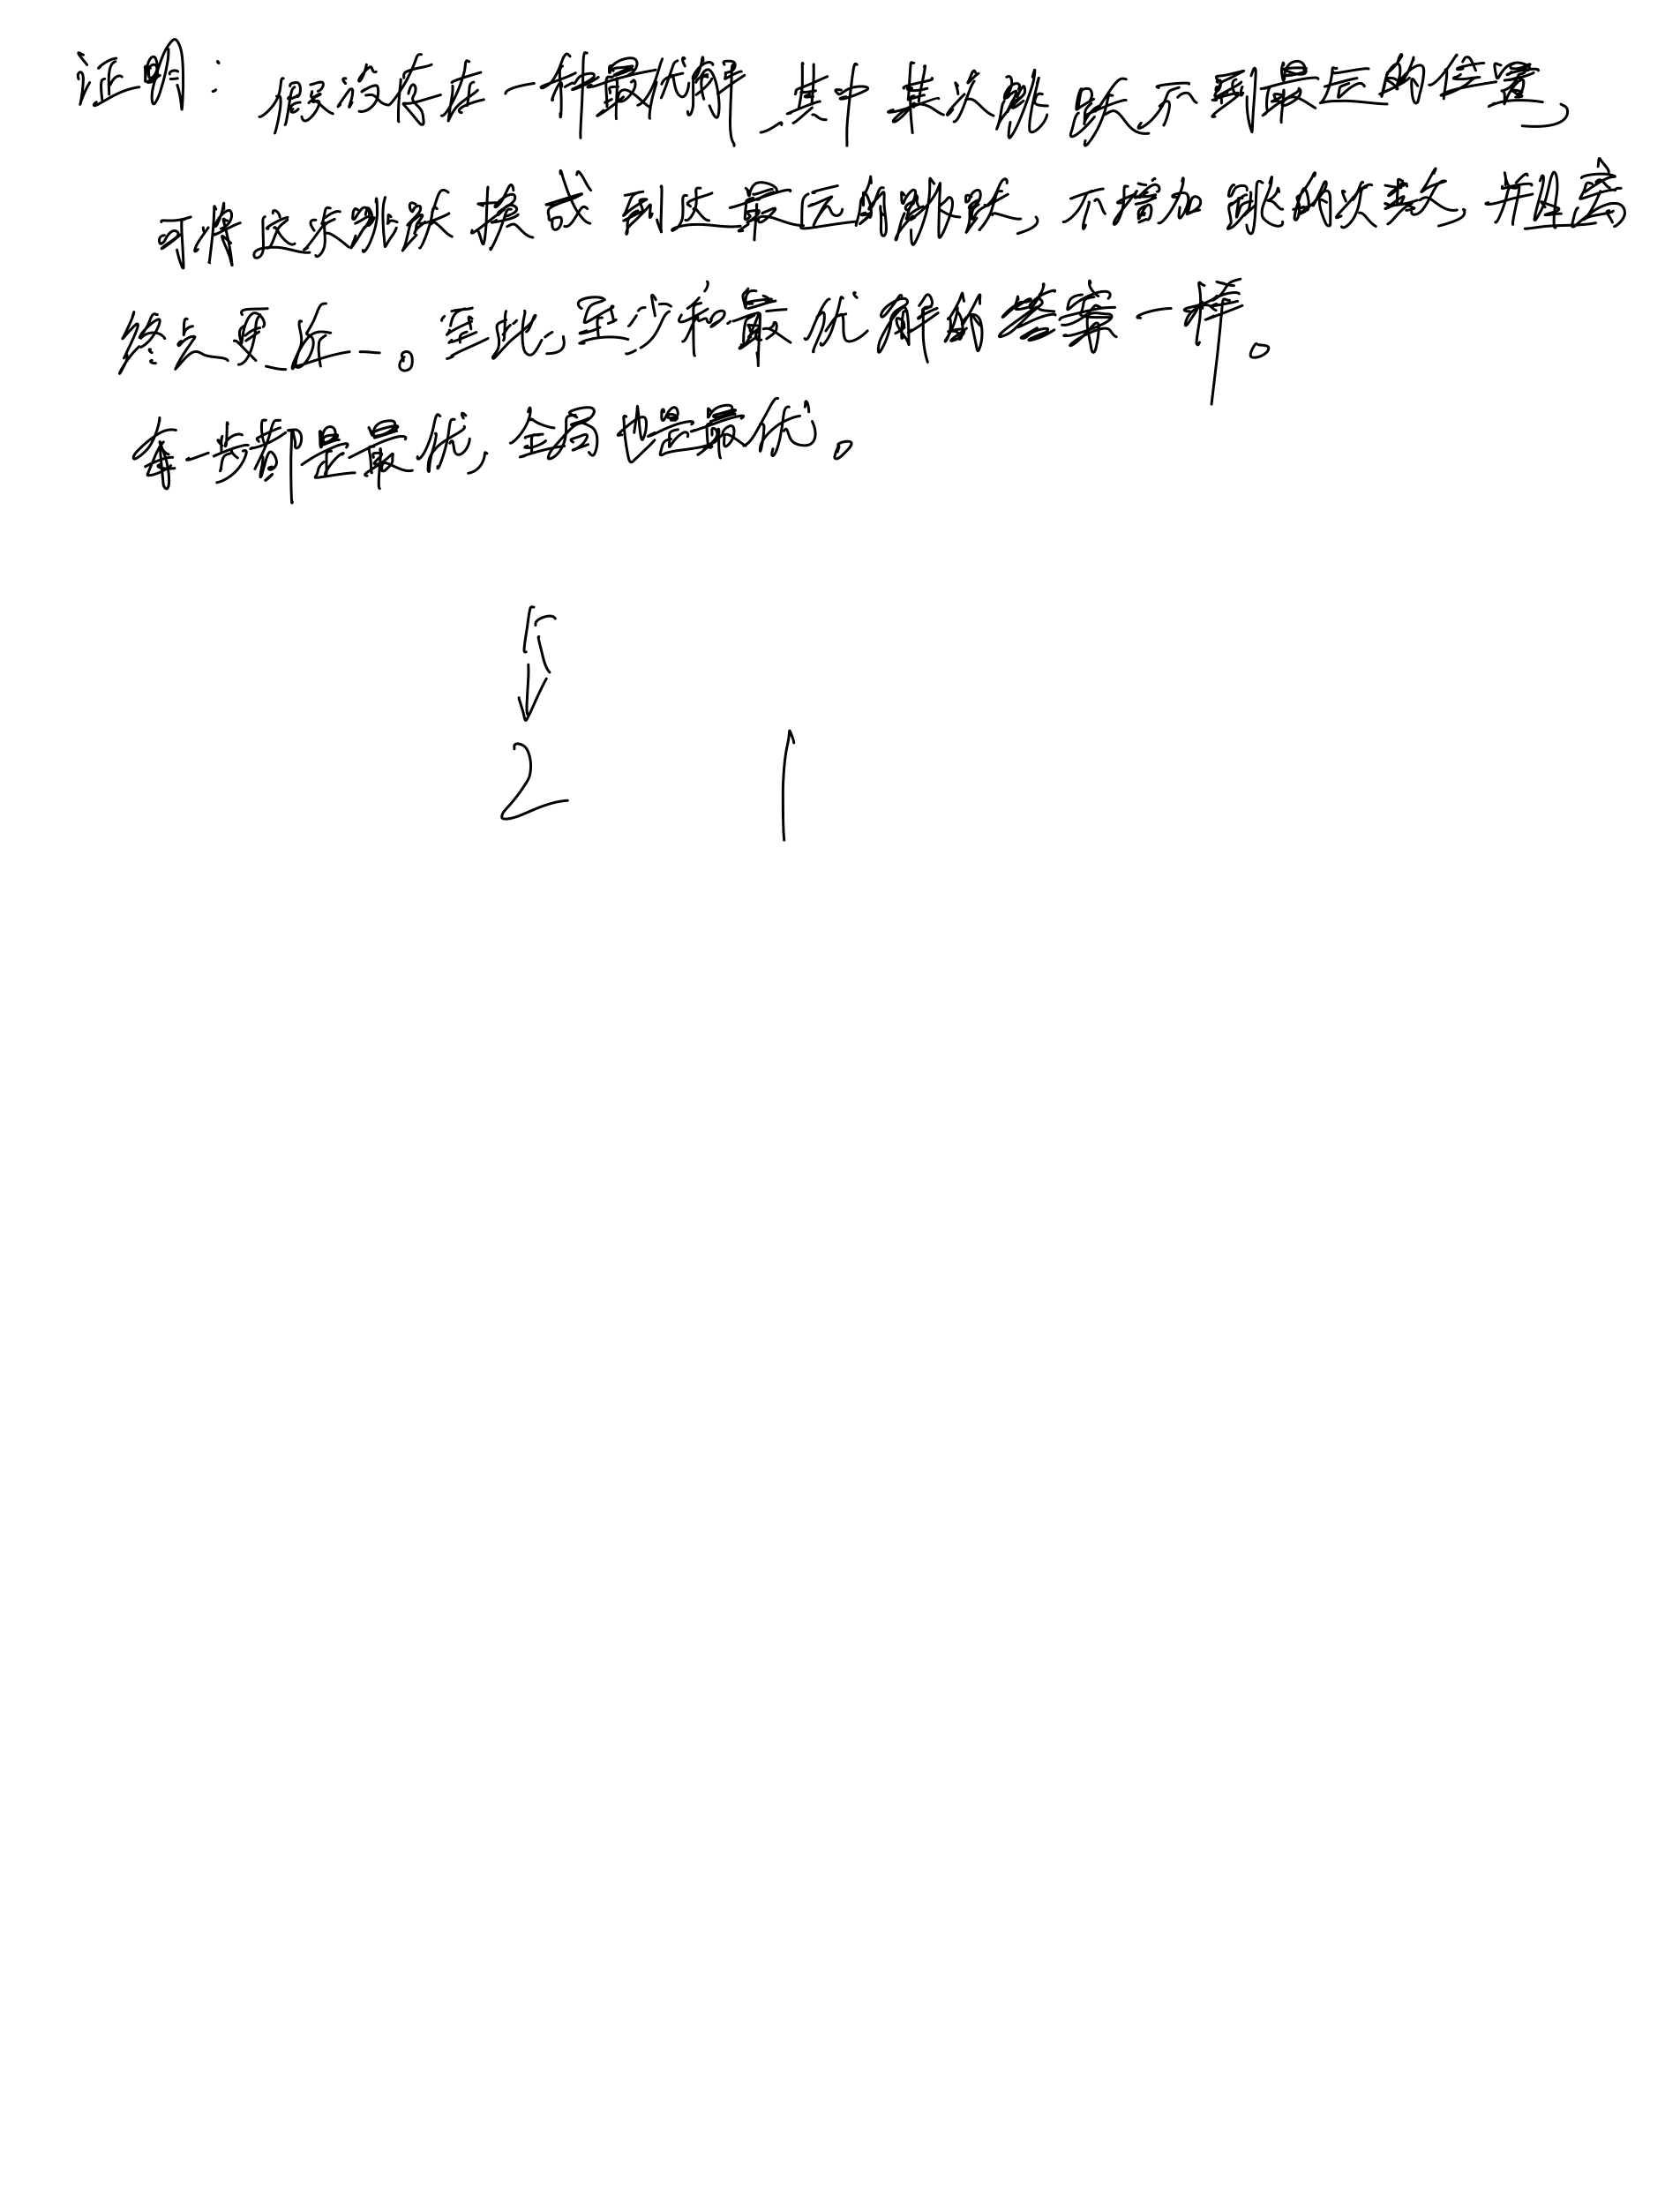 证明: 假设存在一种最优解,其中某次跳跃不到最远的位置,
可将这次跳跃换成到达最远的跳跃,不增加跳的次数,并且离
终点更近一。至此,至少和最优解的答案一样。
每一步都是最优,全局也是最优。
2 1